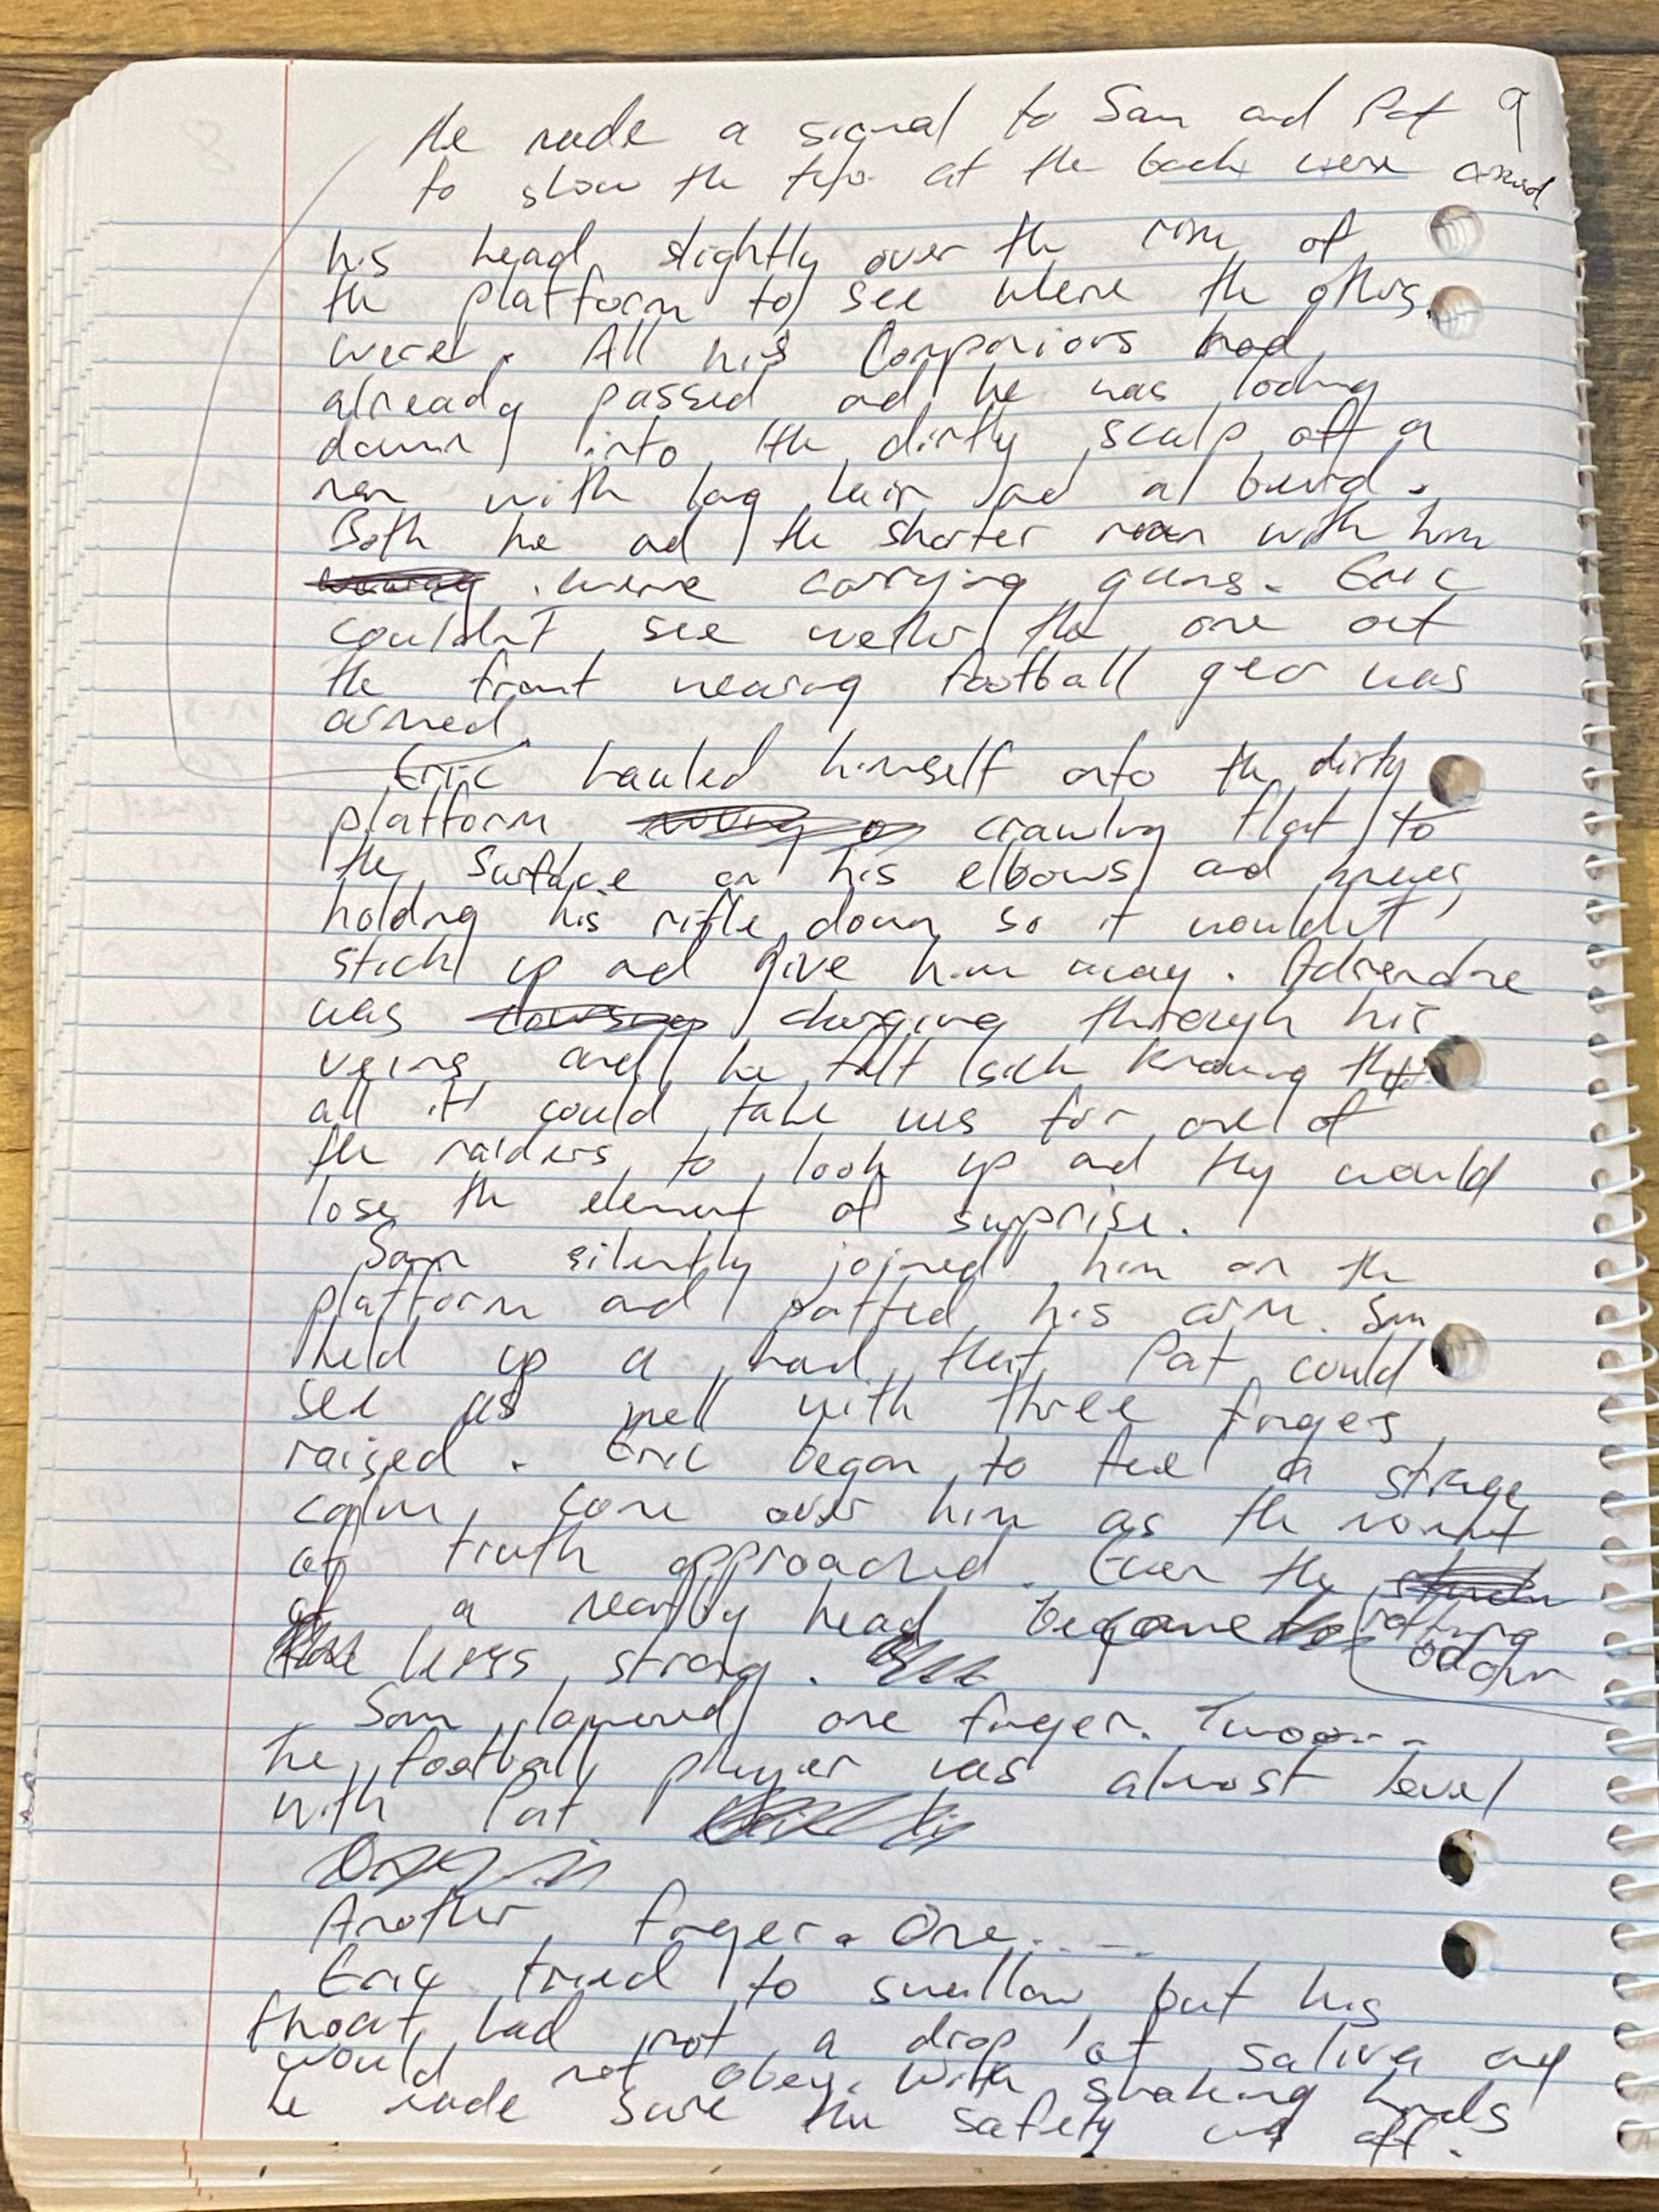 9
He made a signal to Sam and Pat
to show the two at the back were armed
his head slightly over the rim of
the platform to see where the others
were. All his companions had
already passed and he was looking
down into the dirty scalp off a
man with long hair and a beard.
Both he and the shorter man with him
were carrying guns. Eric
couldn't see wether the one out
the front wearing football gear was
armed.
Eric hauled himself onto the dirty
platform crawling flat to
the surface on his elbows and knees,
holding his rifle down so it wouldn't
stick up and give him away. Adrenaline
was charging through his
veins and he felt sick knowing that
all it could take was for one of
the raiders to look up and they would
lose the element of surprise.
Sam silently joined him on the
platform and patted his arm. Sam
held up a hand that Pat could
see as well with three fingers
raised. Eric began to feel a strange
calm come over him as the moment
of truth approached. Even the
rotting
odour
of a nearby head became
less strong.
Sam lowered one finger. Two....
The football player was almost level
with Pat
Another finger. One.....
Eric tried to swallow but his
throat had not a drop of saliva and
would not obey. With shaking hands
he made sure the safety was off.